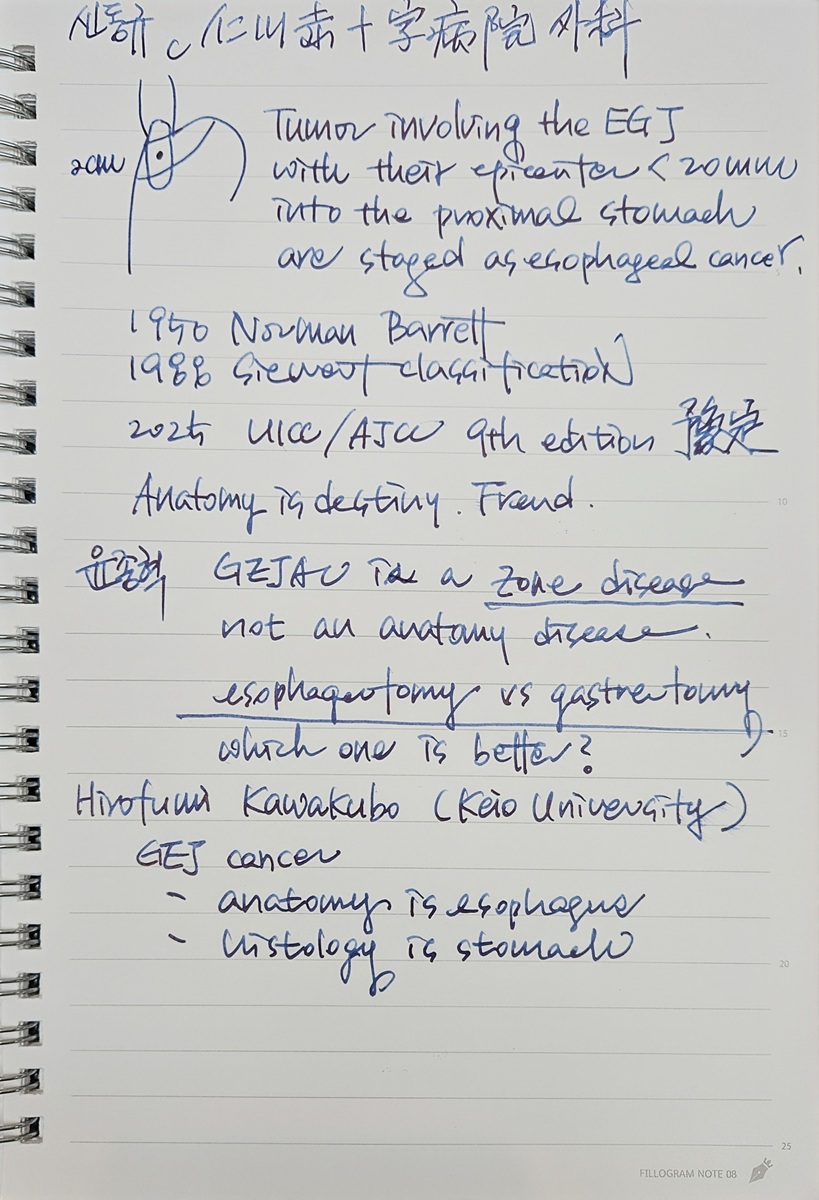 신동규, 仁川赤十字病院 外科
2cm
Tumor involving the EGJ
with their epicenter < 20mm
into the proximal stomach
are staged as esophageal cancer.
1950 Norman Barrett
1988 Siewert classification
2025 UICC/AJCC 9th edition 豫定
Anatomy is destiny. Freud.
윤종혁 GEJAC is a zone disease
not an anatomy disease.
esophagectomy vs gastrectomy
which one is better?
Hirofumi Kawakubo (Keio University)
GEJ cancer
- anatomy is esophagus
- histology is stomach
10
15
20
25
FILLOGRAM NOTE 08